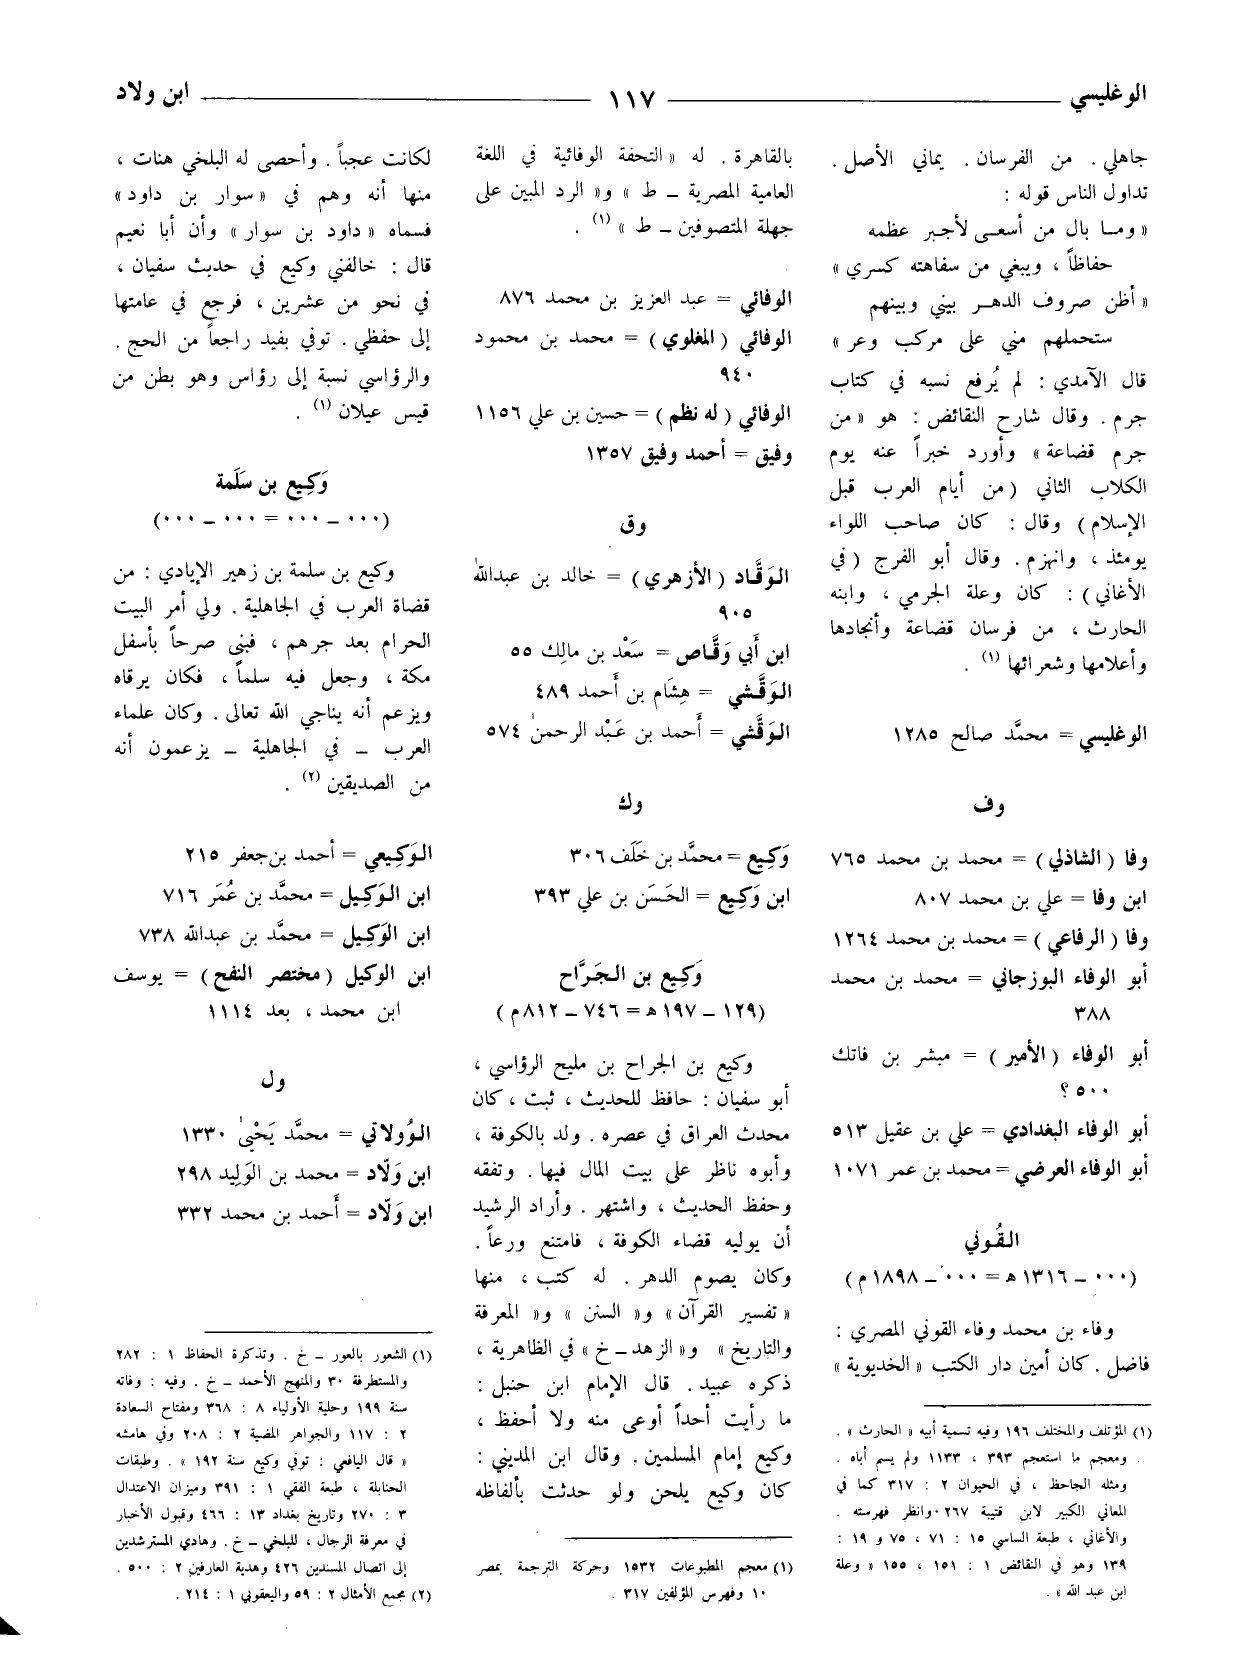 الوغليسي
١١٧
ابن ولاد
جاهلي . من الفرسان . يماني الأصل .
تداول الناس قوله :
« وما بال من أسعى لأجبر عظمه
حفاظاً ، ويبغي من سفاهته كسري »
« أظن صروف الدهر بيني وبينهم
ستحملهم مني على مركب وعر »
قال الآمدي : لم يُرفع نسبه في كتاب
جرم . وقال شارح النقائض : هو « من
جرم قضاعة » وأورد خبراً عنه يوم
الكلاب الثاني ( من أيام العرب قبل
الإسلام ) وقال : كان صاحب اللواء
يومئذ ، وانهزم . وقال أبو الفرج ( في
الأغاني ) : كان وعلة الجرمي ، وابنه
الحارث ، من فرسان قضاعة وأنجادها
وأعلامها وشعرائها (١) .
الوغليسي = محمَّد صالح ١٢٨٥
وف
وفا ( الشاذلي ) = محمد بن محمد ٧٦٥
ابن وفا = علي بن محمد ٨٠٧
وفا ( الرفاعي ) = محمد بن محمد ١٢٦٤
أبو الوفاء البوزجاني = محمد بن محمد
٣٨٨
أبو الوفاء ( الأمير ) = مبشر بن فاتك
٥٠٠ ؟
أبو الوفاء البغدادي = علي بن عقيل ٥١٣
أبو الوفاء العرضي = محمد بن عمر ١٠٧١
القُوني
(٠٠٠ – ١٣١٦ هـ = ٠٠٠ – ١٨٩٨ م )
وفاء بن محمد وفاء القوني المصري :
فاضل . كان أمين دار الكتب « الخديوية »
(١) المؤتلف والمختلف ١٩٦ وفيه تسمية أبيه « الحارث » .
ومعجم ما استعجم ٣٩٣ ، ١١٣٣ ولم يسم أباه .
ومثله الجاحظ ، في الحيوان ٢ : ٣١٧ كما في
المعاني الكبير لابن قتيبة ٢٦٧ وانظر فهرسته .
والأغاني ، طبعة الساسي ١٥ : ٧١ ، ٧٥ و ١٩ :
١٣٩ وهو في النقائض ١ : ١٥١ ، ١٥٥ « وعلة
ابن عبد الله » .
بالقاهرة . له « التحفة الوفائية في اللغة
العامية المصرية – ط » و« الرد المبين على
جهلة المتصوفين – ط » (١) .
الوفائي = عبد العزيز بن محمد ٨٧٦
الوفائي ( المغلوي ) = محمد بن محمود
٩٤٠
الوفائي ( له نظم ) = حسين بن علي ١١٥٦
وفيق = أحمد وفيق ١٣٥٧
وق
الوَقَّاد ( الأزهري ) = خالد بن عبدالله
٩٠٥
ابن أبي وَقَّاص = سَعْد بن مالِك ٥٥
الوَقَّشي = هِشَام بن أَحمد ٤٨٩
الوَقَّشي = أَحمد بن عَبْد الرحمن ٥٧٤
وك
وَكِيع = محمَّد بن خَلَف ٣٠٦
ابن وَكِيع = الحَسَن بن علي ٣٩٣
وَكِيع بن الجَرَّاح
(١٢٩ – ١٩٧ هـ = ٧٤٦ – ٨١٢ م )
وكيع بن الجراح بن مليح الرؤاسي ،
أبو سفيان : حافظ للحديث ، ثبت ، كان
محدث العراق في عصره . ولد بالكوفة ،
وأبوه ناظر على بيت المال فيها . وتفقه
وحفظ الحديث ، واشتهر . وأراد الرشيد
أن يوليه قضاء الكوفة ، فامتنع ورعاً .
وكان يصوم الدهر . له كتب ، منها
« تفسير القرآن » و« السنن » و« المعرفة
والتاريخ » و« الزهد – خ » في الظاهرية ،
ذكره عبيد . قال الإمام ابن حنبل :
ما رأيت أحداً أوعى منه ولا أحفظ ،
وكيع إمام المسلمين . وقال ابن المديني :
كان وكيع يلحن ولو حدثت بألفاظه
(١) معجم المطبوعات ١٥٣٢ وحركة الترجمة بمصر
١٠ وفهرس المؤلفين ٣١٧ .
لكانت عجباً . وأحصى له البلخي هنات ،
منها أنه وهم في « سوار بن داود »
فسماه « داود بن سوار » وأن أبا نعيم
قال : خالفني وكيع في حديث سفيان ،
في نحو من عشرين ، فرجع في عامتها
إلى حفظي . توفي بفيد راجعاً من الحج .
والرؤاسي نسبة إلى رؤاس وهو بطن من
قيس عيلان (١) .
وَكِيع بن سَلَمة
(٠٠٠ – ٠٠٠ = ٠٠٠ – ٠٠٠)
وكيع بن سلمة بن زهير الإيادي : من
قضاة العرب في الجاهلية . ولي أمر البيت
الحرام بعد جرهم ، فبنى صرحاً بأسفل
مكة ، وجعل فيه سلماً ، فكان يرقاه
ويزعم أنه يناجي الله تعالى . وكان علماء
العرب – في الجاهلية – يزعمون أنه
من الصديقين (٢) .
الوَكِيعي = أحمد بن جعفر ٢١٥
ابن الوَكِيل = محمَّد بن عُمَر ٧١٦
ابن الوَكِيل = محمَّد بن عبدالله ٧٣٨
ابن الوكيل ( مختصر النفح ) = يوسف
ابن محمد ، بعد ١١١٤
ول
الوُولاتي = محمَّد يَحْيىٰ ١٣٣٠
ابن وَلّاد = محمد بن الوَليد ٢٩٨
ابن وَلّاد = أَحمد بن محمد ٣٣٢
(١) الشعور بالعور – خ . وتذكرة الحفاظ ١ : ٢٨٢
والمستطرفة ٣٠ والمنهج الأحمد – خ . وفيه : وفاته
سنة ١٩٩ وحلية الأولياء ٨ : ٣٦٨ ومفتاح السعادة
٢ : ١١٧ والجواهر المضية ٢ : ٢٠٨ وفي هامشه
« قال اليافعي : توفي وكيع سنة ١٩٢ » . وطبقات
الحنابلة ، طبعة الفقي ١ : ٣٩١ وميزان الاعتدال
٣ : ٢٧٠ وتاريخ بغداد ١٣ : ٤٦٦ وقبول الأخبار
في معرفة الرجال ، للبلخي – خ . وهادي المسترشدين
إلى اتصال المسندين ٤٢٦ وهدية العارفين ٢ : ٥٠٠ .
(٢) مجمع الأمثال ٢ : ٥٩ واليعقوبي ١ : ٢١٤ .